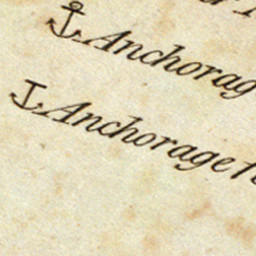 Anchorag
Anchorage